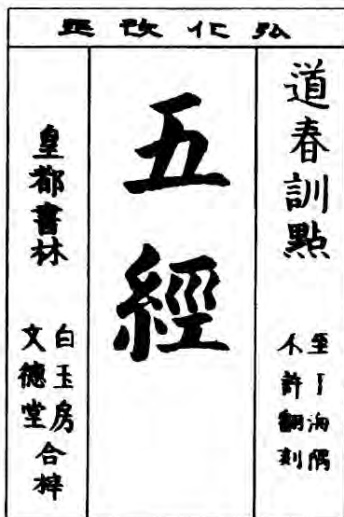 弘化改正
道春訓點
至于海隅
不許翻刻
五經
皇都書林
白玉房
文德堂
合梓